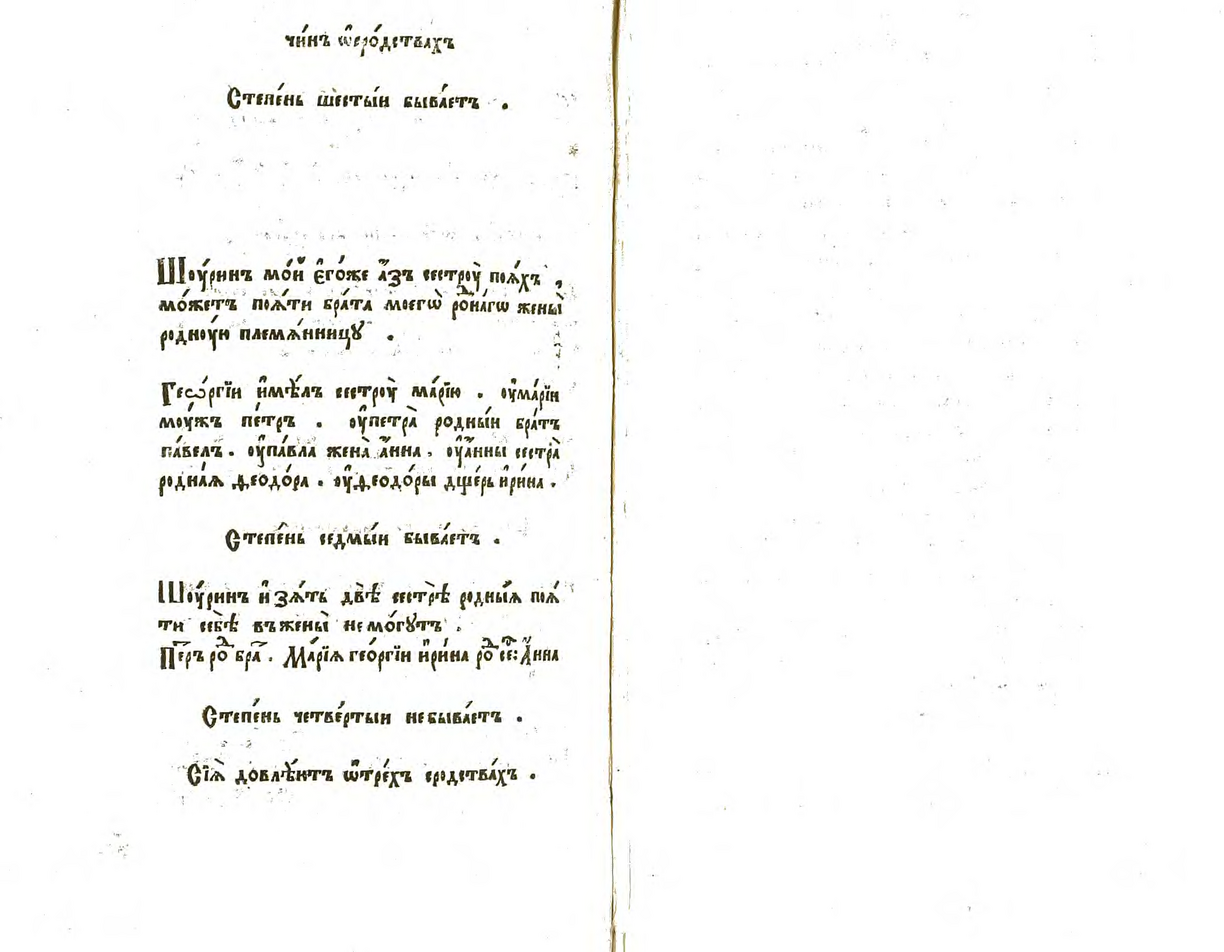 чи́нъ ѡ҆сро́дствахъ
Степе́нь шесты́й быва́етъ .
Шоу́ринъ мо́й є҆го́же а҆́зъ сестроу̀ поя́хъ ,
мо́жетъ поя́ти бра́та моегѡ̀ ро́ⷣна́гѡ жены̀
родноую племя́нницꙋ .
Геѡ́ргїи и҆мѣ́лъ сестроу̀ ма́рїю . оу҆ма́рїи
моу́жъ пе́тръ . оу҆петра̀ родны́й бра́тъ
па́велъ . оу҆па́вла жена̀ а҆́нна , оу҆а҆́нны сестра̀
родна́ѧ ѳеодо́ра . оу҆ѳеодо́ры дщерь и҆ри́на .
Степе́нь седмы́й быва́етъ .
Шоу́ринъ и҆ зя́ть двѣ̀ сестрѣ̀ родны́ѧ поя́
ти себѣ̀ въжены̀ немо́гꙋтъ .
Пе҃ръ роⷣ бра҃ . Ма́рїѧ гео́ргїи и҆ри́на роⷣ сеⷭ: А҆́нна
Степе́нь четве́ртыи небыва́етъ .
Сїѧ̀ довлѣ́ютъ ѡ҆тре́хъ сродства́хъ .